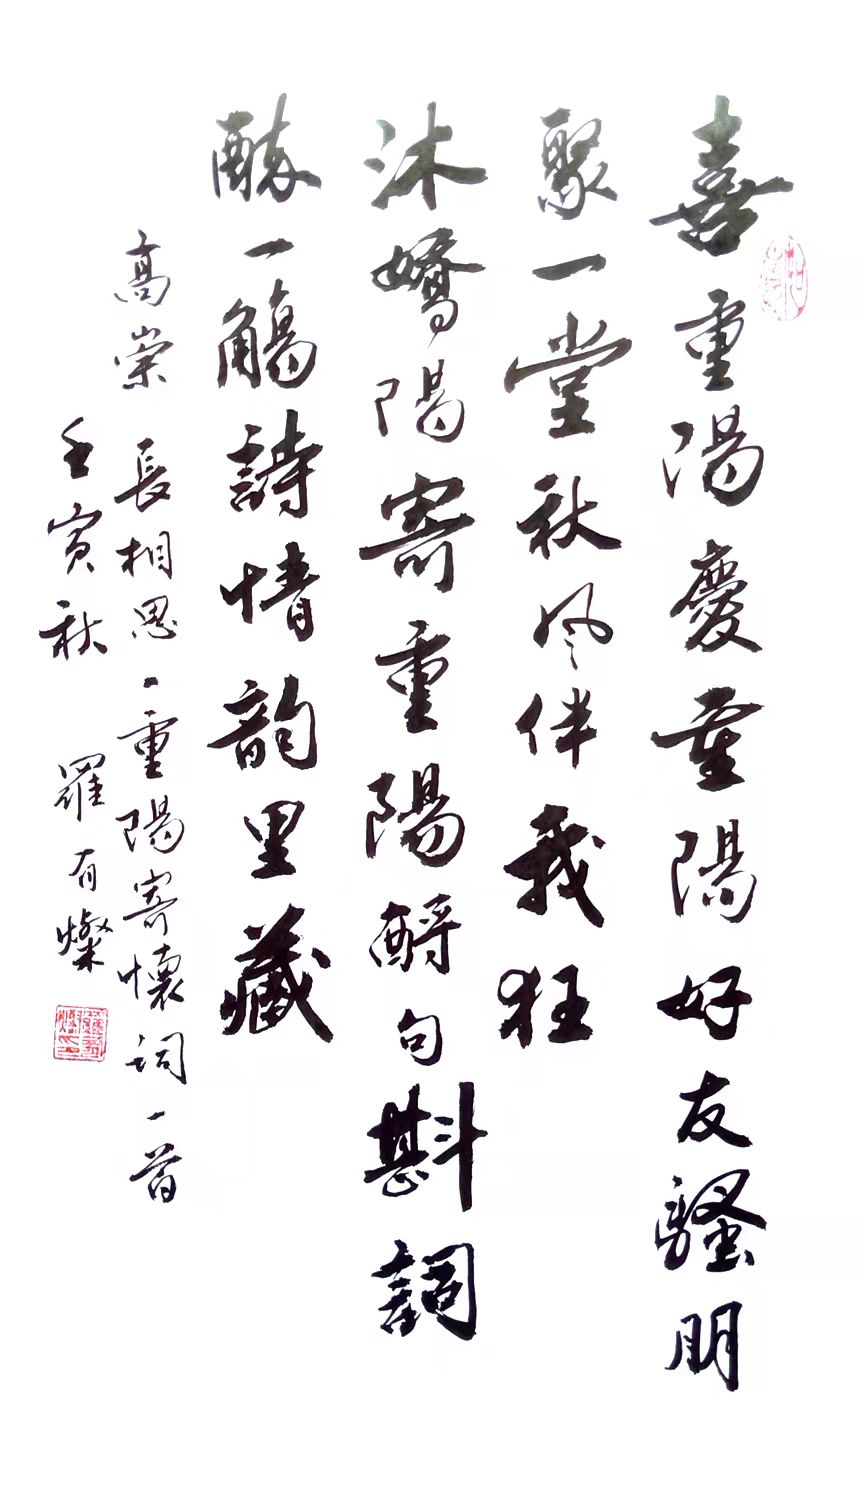 喜重陽慶重陽好友騷朋
聚一堂秋风伴我狂
沐嬌陽寄重陽酹句斟詞
酹一觴詩情韵里藏
高崇 長相思一重陽寄懷詞一首
壬寅秋 羅有燦